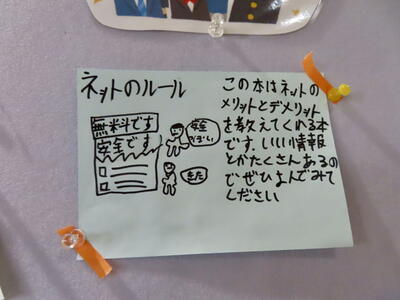 ネットのルール
無料です
安全です
安全
ぽい
また
この本はネットの
メリットとデメリット
を教えてくれる本
です。いい情報
とかたくさんあるの
でぜひよんでみて
ください